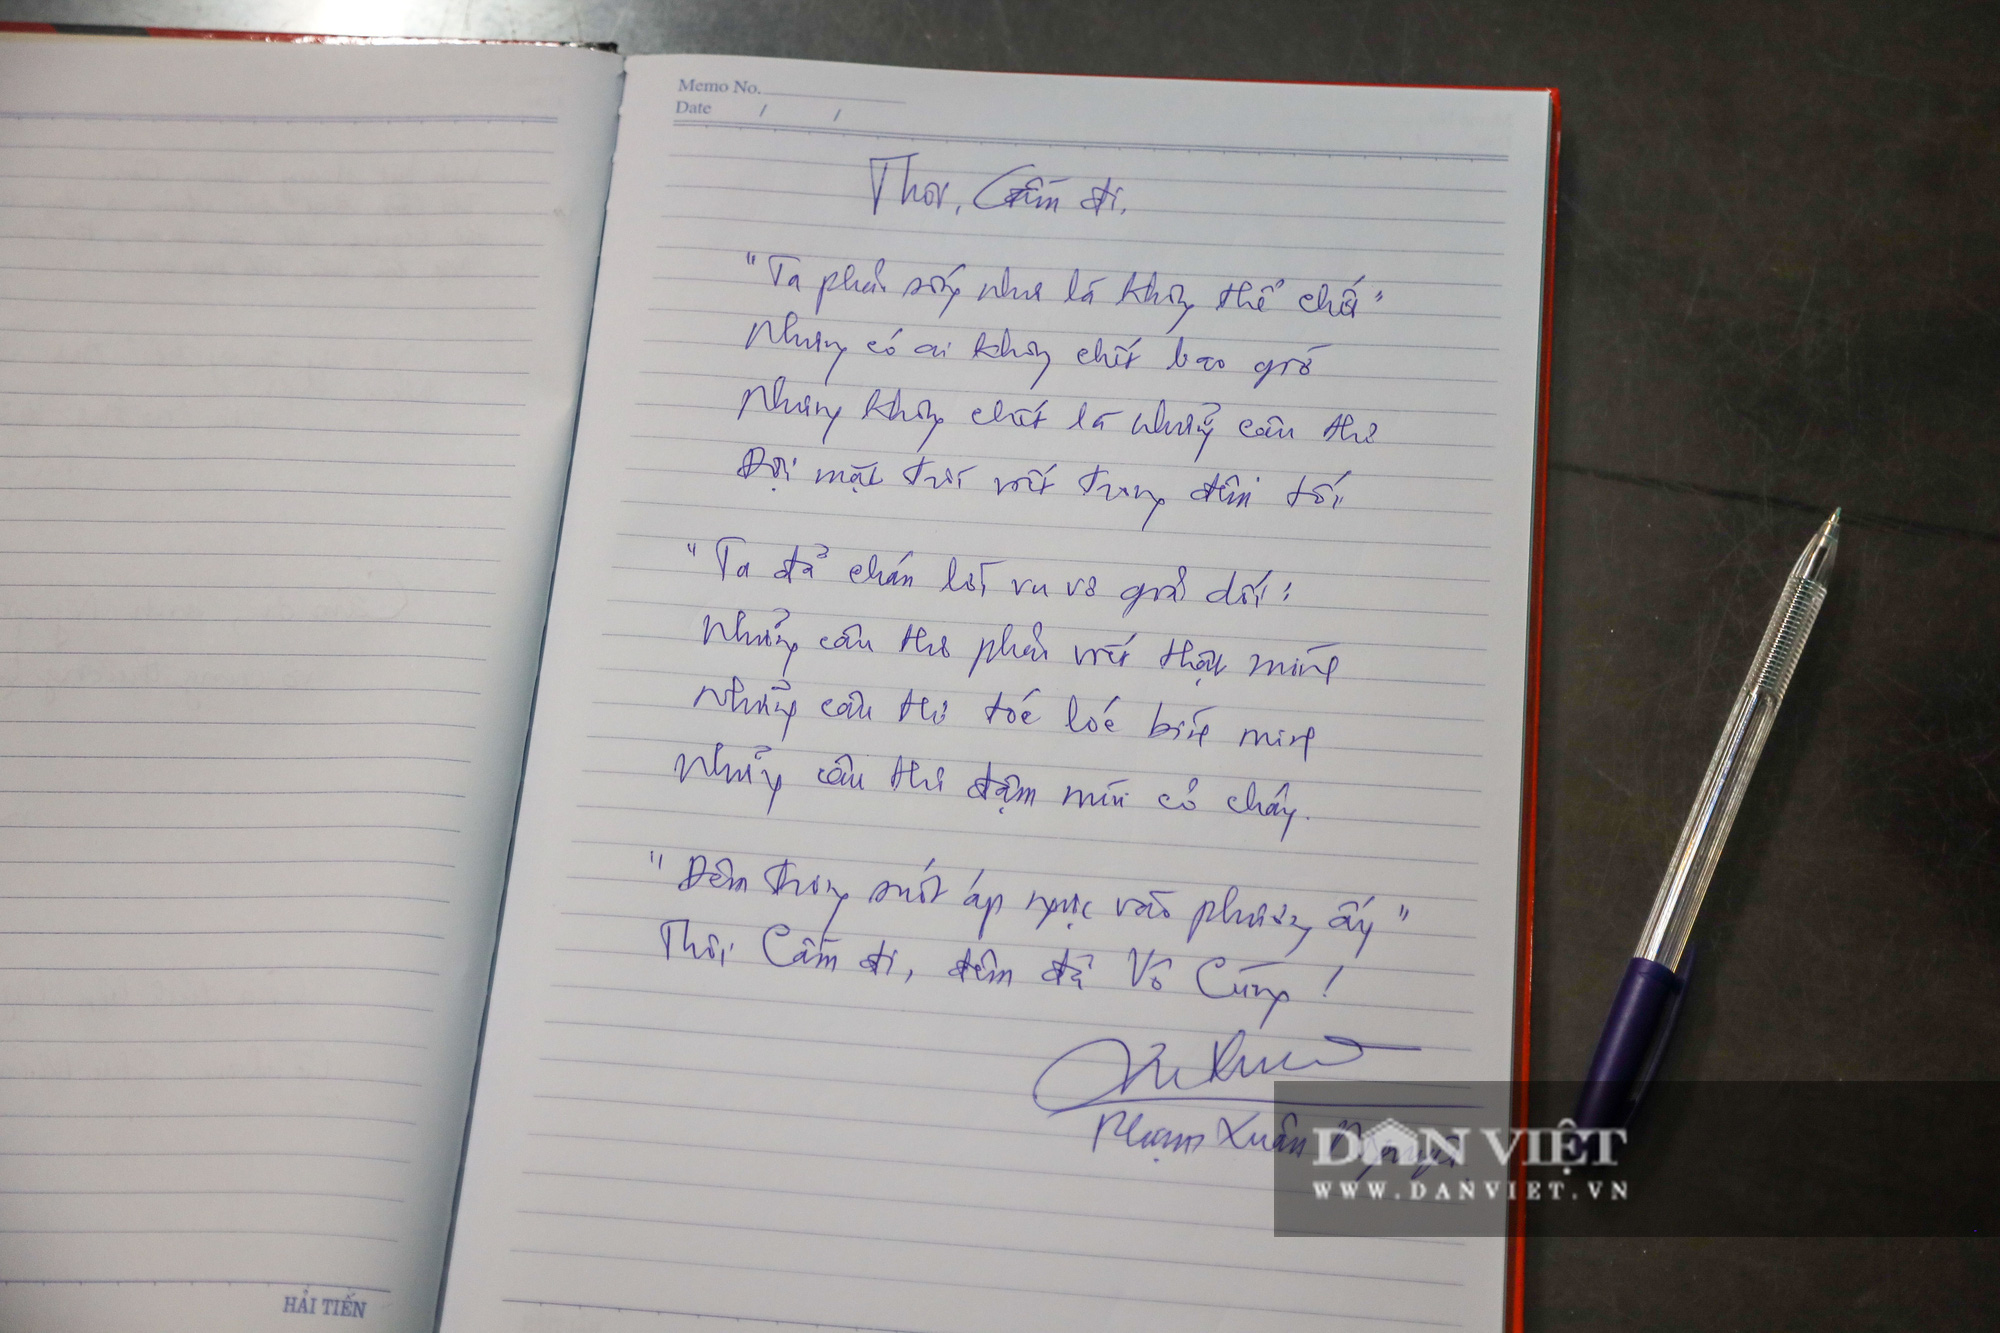 Memo No.
Date / /
Thôi, Cầm đi.
"Ta phải sống như là không thể chết"
Nhưng có ai không chết bao giờ
Nhưng không chết là những câu thơ
Đợi mặt trời viết trong đêm tối
"Ta đã chán lời vu vơ giả dối"
Những câu thơ phải viết thật mình
Những câu thơ toé loé bình minh
Những câu thơ đậm mùi cỏ cháy.
"Đêm trong suốt áp ngực vào phương ấy"
Thôi Cầm đi, đêm đã Vô Cùng!
Phạm Xuân Nguyên
DÂN VIỆT
WWW.DANVIET.VN
HẢI TIẾN